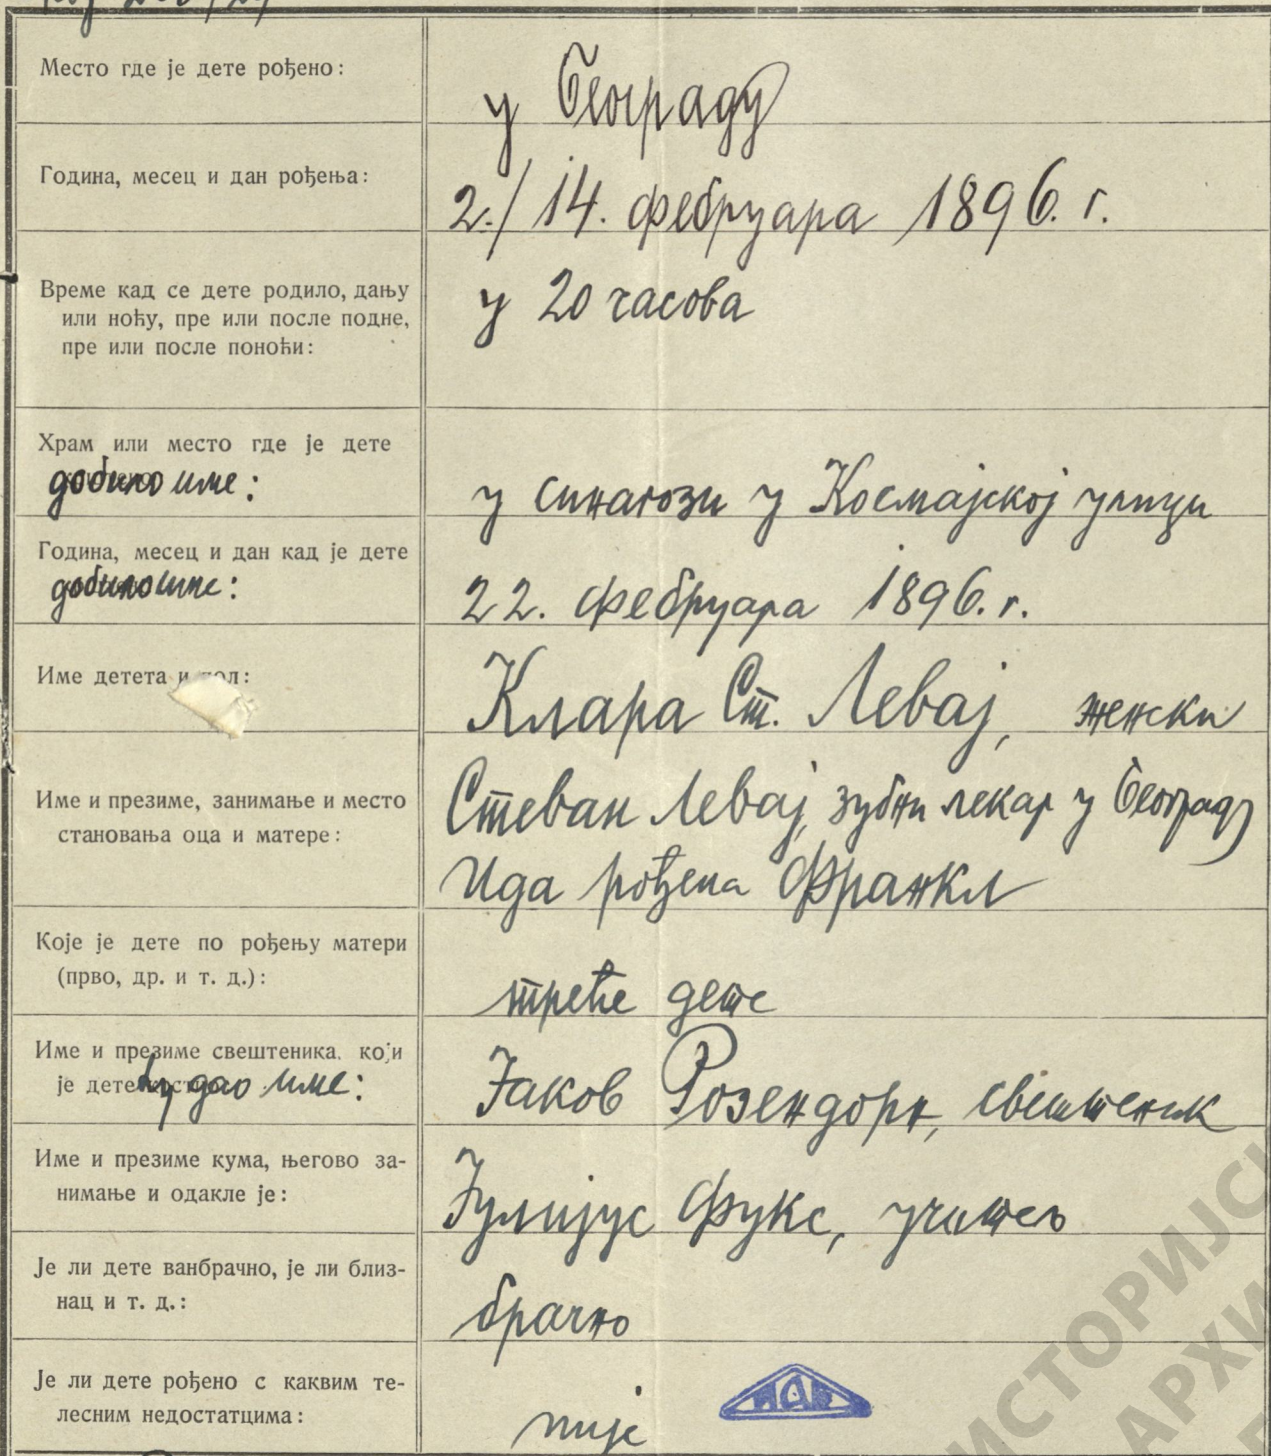 Место где је дете рођено:
у Београду
Година, месец и дан рођења:
2./14. фебруара 1896. г.
Време кад се дете родило, дању
или ноћу, пре или после подне,
пре или после поноћи:
у 20 часова
Храм или место где је дете
добило име:
у синагози у Космајској улици
Година, месец и дан кад је дете
добило име:
22. фебруара 1896. г.
Име детета и пол:
Клара Ст. Левај, женски
Име и презиме, занимање и место
становања оца и матере:
Стеван Левај, зубни лекар у Београду
Ида рођена Франкл
Које је дете по рођењу матери
(прво, др. и т. д.):
треће дете
Име и презиме свештеника, који
је детету дао име:
Јаков Розендорн, свештеник
Име и презиме кума, његово за-
нимање и одакле је:
Јулијус Фукс, учитељ
Је ли дете ванбрачно, је ли близ-
нац и т. д.:
брачно
Је ли дете рођено с каквим те-
лесним недостатцима:
није
А
ИСТОРИЈСК
АРХИ